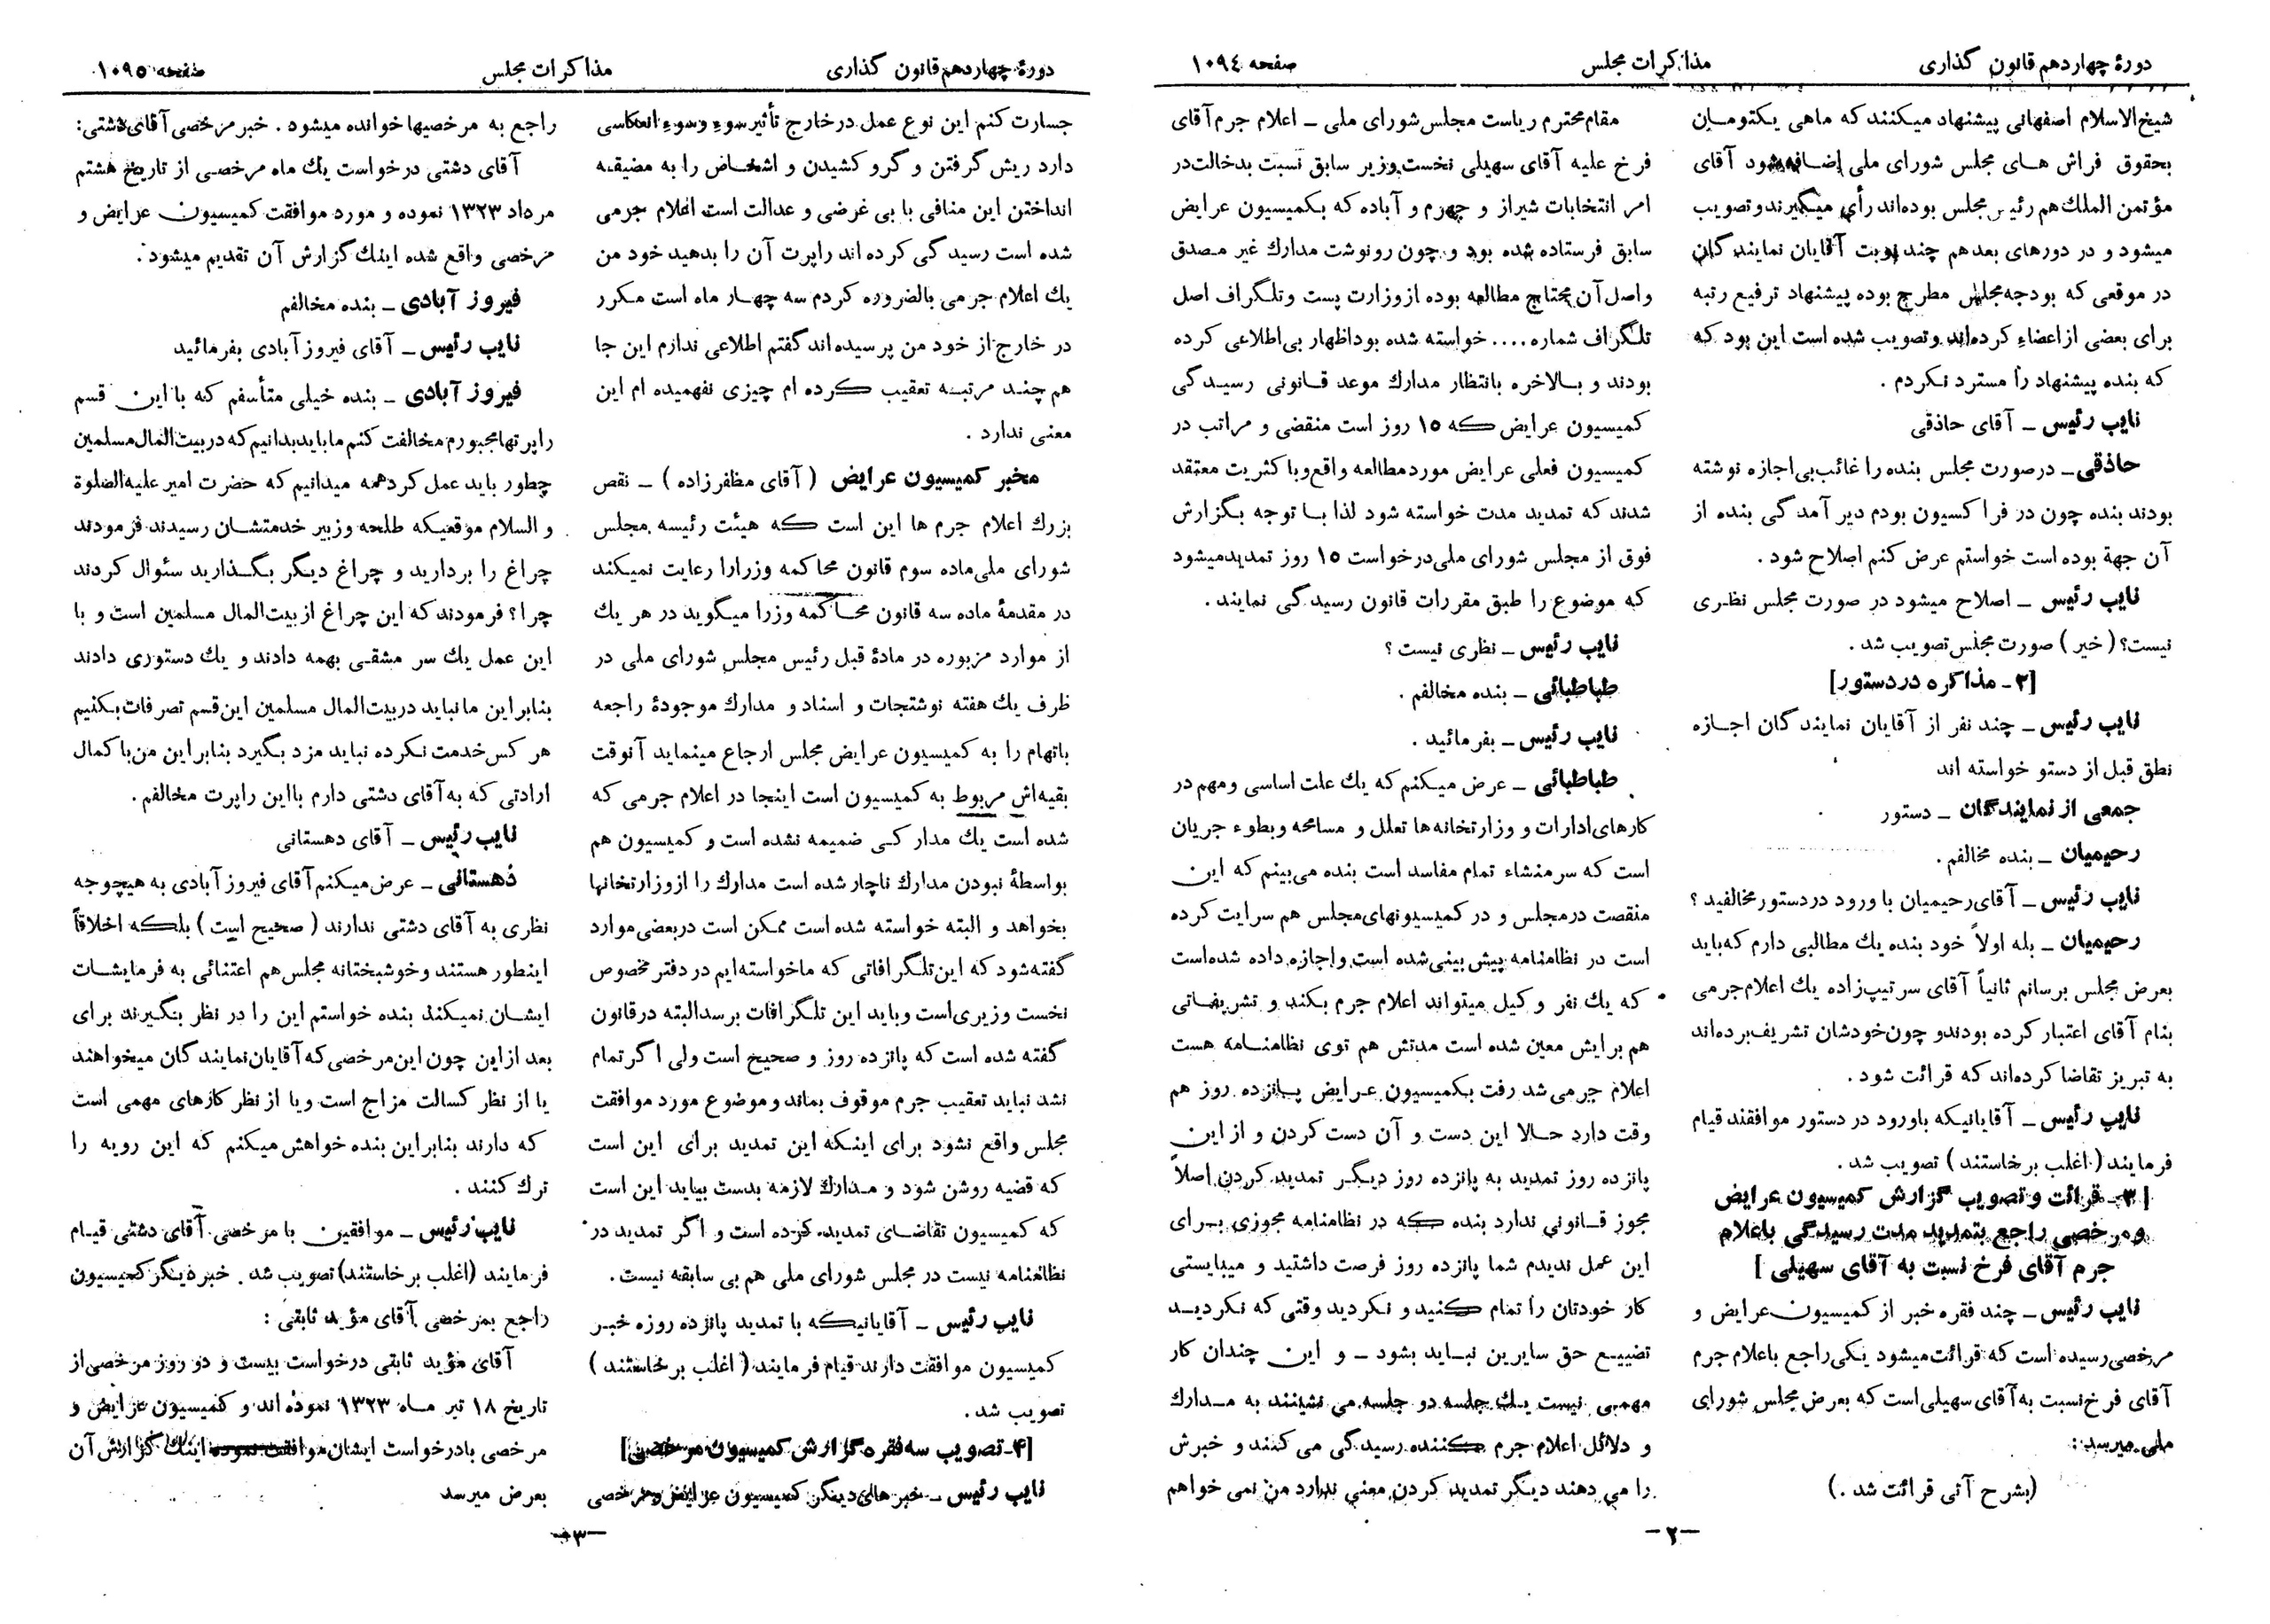 دورهٔ چهاردهم قانون گذاری
مذاکرات مجلس
صفحه ۱۰۹۴
شیخ‌الاسلام اصفهانی پیشنهاد میکنند که ماهی یکتومان
بحقوق فراش های مجلس شورای ملی اضافه شود آقای
مؤتمن الملك هم رئیس مجلس بوده‌اند رأی میگیرند و تصویب
میشود و در دورهای بعد هم چند نوبت آقایان نمایندگان
در موقعی که بودجه مجلس مطرح بوده پیشنهاد ترفیع رتبه
برای بعضی از اعضاء کرده‌اند و تصویب شده است این بود که
که بنده پیشنهاد را مسترد نکردم .
نایب رئیس ـ آقای حاذقی
حاذقی ـ در صورت مجلس بنده را غائب بی اجازه نوشته
بودند بنده چون در فراکسیون بودم دیر آمدگی بنده از
آن جهة بوده است خواستم عرض کنم اصلاح شود .
نایب رئیس ـ اصلاح میشود در صورت مجلس نظری
نیست؟ (خیر) صورت مجلس تصویب شد .
[۲ـ مذاکره در دستور]
نایب رئیس ـ چند نفر از آقایان نمایندگان اجازه
نطق قبل از دستو خواسته اند
جمعی از نمایندگان ـ دستور
رحیمیان ـ بنده مخالفم .
نایب رئیس ـ آقای رحیمیان با ورود در دستور مخالفید ؟
رحیمیان ـ بله اولاً خود بنده يك مطالبی دارم که باید
بعرض مجلس برسانم ثانیاً آقای سرتیپ‌زاده يك اعلام جرمی
بنام آقای اعتبار کرده بودند و چون خودشان تشریف برده‌اند
به تبریز تقاضا کرده‌اند که قرائت شود .
نایب رئیس ـ آقایانیکه باورود در دستور موافقند قیام
فرمایند (اغلب برخاستند) تصویب شد .
[۳ـ قرائت و تصویب گزارش کمیسیون عرایض
و مرخصی راجع بتمدید مدت رسیدگی باعلام
جرم آقای فرخ نسبت به آقای سهیلی ]
نایب رئیس ـ چند فقره خبر از کمیسیون عرایض و
مرخصی رسیده است که قرائت میشود یکی راجع باعلام جرم
آقای فرخ نسبت به آقای سهیلی است که بعرض مجلس شورای
ملی میرسد:
(بشرح آتی قرائت شد .)
مقام محترم ریاست مجلس شورای ملی ـ اعلام جرم آقای
فرخ علیه آقای سهیلی نخست وزیر سابق نسبت بدخالت در
امر انتخابات شیراز و جهرم و آباده که بکمیسیون عرایض
سابق فرستاده شده بود و چون رونوشت مدارك غیر مصدق
و اصل آن محتاج مطالعه بوده از وزارت پست و تلگراف اصل
تلگراف شماره .... خواسته شده بود اظهار بی‌اطلاعی کرده
بودند و بالاخره بانتظار مدارك موعد قانونی رسیدگی
کمیسیون عرایض که ۱۵ روز است منقضی و مراتب در
کمیسیون فعلی عرایض مورد مطالعه واقع و با کثریت معتقد
شدند که تمدید مدت خواسته شود لذا با توجه بگزارش
فوق از مجلس شورای ملی درخواست ۱۵ روز تمدید میشود
که موضوع را طبق مقررات قانون رسیدگی نمایند .
نایب رئیس ـ نظری نیست ؟
طباطبائی ـ بنده مخالفم .
نایب رئیس ـ بفرمائید .
طباطبائی ـ عرض میکنم که يك علت اساسی و مهم در
کارهای ادارات و وزارتخانه‌ها تعلل و مسامحه و بطوء جریان
است که سرمنشاء تمام مفاسد است بنده می‌بینم که این
منقصت در مجلس و در کمیسیونهای مجلس هم سرایت کرده
است در نظامنامه پیش بینی شده است و اجازه داده شده است
که يك نفر وکیل میتواند اعلام جرم بکند و تشریفاتی
هم برایش معین شده است مدتش هم توی نظامنامه هست
اعلام جرمی شد رفت بکمیسیون عرایض پانزده روز هم
وقت دارد حالا این دست و آن دست کردن و از این
پانزده روز تمدید به پانزده روز دیگر تمدید کردن اصلاً
مجوز قانونی ندارد بنده که در نظامنامه مجوزی برای
این عمل ندیدم شما پانزده روز فرصت داشتید و میبایستی
کار خودتان را تمام کنید و نکردید وقتی که نکردید
تضییع حق سایرین نباید بشود ـ و این چندان کار
مهمی نیست يك جلسه دو جلسه می نشینند به مدارك
و دلائل اعلام جرم کننده رسیدگی می کنند و خبرش
را می دهند دیگر تمدید کردن معنی ندارد من نمی خواهم
ـ۲ـ
دورهٔ چهاردهم قانون گذاری
مذاکرات مجلس
صفحه ۱۰۹۵
جسارت کنم این نوع عمل در خارج تأثیر سوء و سوء انعکاسی
دارد ریش گرفتن و گرو کشیدن و اشخاص را به مضیقه
انداختن این منافی با بی غرضی و عدالت است اعلام جرمی
شده است رسیدگی کرده اند راپرت آن را بدهید خود من
يك اعلام جرمی بالضروره کردم سه چهار ماه است مکرر
در خارج از خود من پرسیده‌اند گفتم اطلاعی ندارم این جا
هم چند مرتبه تعقیب کرده ام چیزی نفهمیده ام این
معنی ندارد .
مخبر کمیسیون عرایض (آقای مظفرزاده) ـ نقص
بزرك اعلام جرم ها این است که هیئت رئیسه مجلس
شورای ملی ماده سوم قانون محاکمه وزرا را رعایت نمیکند
در مقدمهٔ ماده سه قانون محاکمه وزرا میگوید در هر يك
از موارد مزبوره در مادهٔ قبل رئیس مجلس شورای ملی در
ظرف يك هفته نوشتجات و اسناد و مدارك موجودهٔ راجعه
باتهام را به کمیسیون عرایض مجلس ارجاع مینماید آنوقت
بقیه‌اش مربوط به کمیسیون است اینجا در اعلام جرمی که
شده است يك مدارکی ضمیمه نشده است و کمیسیون هم
بواسطهٔ نبودن مدارك ناچار شده است مدارك را از وزارتخانها
بخواهد و البته خواسته شده است ممکن است در بعضی موارد
گفته شود که این تلگرافاتی که ما خواسته‌ایم در دفتر مخصوص
نخست وزیری است و باید این تلگرافات برسد البته در قانون
گفته شده است که پانزده روز و صحیح است ولی اگر تمام
نشد نباید تعقیب جرم موقوف بماند و موضوع مورد موافقت
مجلس واقع نشود برای اینکه این تمدید برای این است
که قضیه روشن شود و مدارك لازمه بدست بیاید این است
که کمیسیون تقاضای تمدید کرده است و اگر تمدید در
نظامنامه نیست در مجلس شورای ملی هم بی سابقه نیست .
نایب رئیس ـ آقایانیکه با تمدید پانزده روزه خبر
کمیسیون موافقت دارند قیام فرمایند (اغلب برخاستند)
تصویب شد .
[۴ـ تصویب سه فقره گزارش کمیسیون مرخصی]
نایب رئیس ـ خبرهای دیگر کمیسیون عرایض و مرخصی
راجع به مرخصیها خوانده میشود . خبر مرخصی آقای دشتی:
آقای دشتی درخواست يك ماه مرخصی از تاریخ هشتم
مرداد ۱۳۲۳ نموده و مورد موافقت کمیسیون عرایض و
مرخصی واقع شده اینك گزارش آن تقدیم میشود .
فیروز آبادی ـ بنده مخالفم
نایب رئیس ـ آقای فیروز آبادی بفرمائید
فیروز آبادی ـ بنده خیلی متأسفم که با این قسم
راپرتها مجبورم مخالفت کنم ما باید بدانیم که در بیت‌المال مسلمین
چطور باید عمل کرد همه میدانیم که حضرت امیر علیه‌الصلوة
و السلام موقعیکه طلحه و زبیر خدمتشان رسیدند فرمودند
چراغ را بردارید و چراغ دیگر بگذارید سئوال کردند
چرا؟ فرمودند که این چراغ از بیت‌المال مسلمین است و با
این عمل يك سر مشقی بهمه دادند و يك دستوری دادند
بنابراین ما نباید در بیت‌المال مسلمین این قسم تصرفات بکنیم
هر کس خدمت نکرده نباید مزد بگیرد بنابراین من با کمال
ارادتی که به آقای دشتی دارم بااین راپرت مخالفم .
نایب رئیس ـ آقای دهستانی
دهستانی ـ عرض میکنم آقای فیروز آبادی به هیچوجه
نظری به آقای دشتی ندارند (صحیح است) بلکه اخلاقاً
اینطور هستند و خوشبختانه مجلس هم اعتنائی به فرمایشات
ایشان نمیکند بنده خواستم این را در نظر بگیرند برای
بعد از این چون این مرخصی که آقایان نمایندگان میخواهند
یا از نظر کسالت مزاج است و یا از نظر کارهای مهمی است
که دارند بنابراین بنده خواهش میکنم که این رویه را
ترك کنند .
نایب رئیس ـ موافقین با مرخصی آقای دشتی قیام
فرمایند (اغلب برخاستند) تصویب شد . خبر دیگر کمیسیون
راجع بمرخصی آقای مؤید ثابتی :
آقای مؤید ثابتی درخواست بیست و دو روز مرخصی از
تاریخ ۱۸ تیر ماه ۱۳۲۳ نموده اند و کمیسیون عرایض و
مرخصی بادرخواست ایشان موافقت نموده اینك گزارش آن
بعرض میرسد
ـ۳ـ